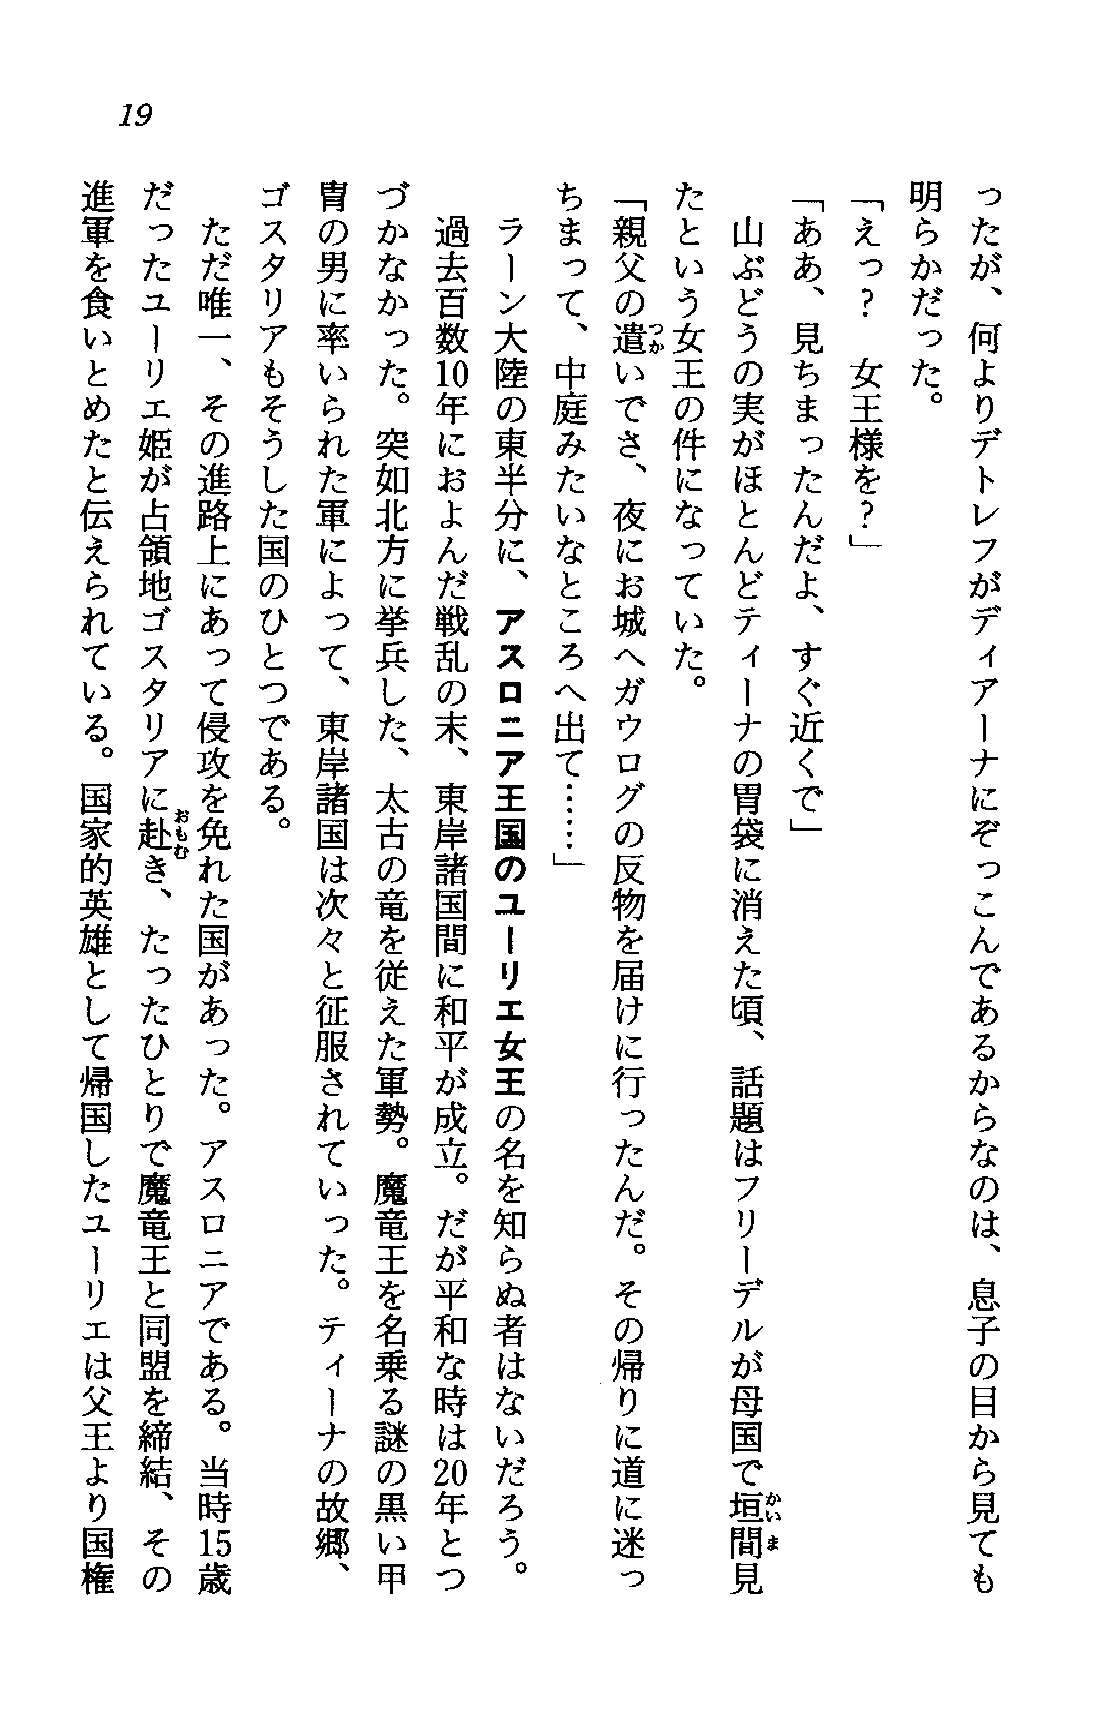 19
ったが、何よりデトレフがディアーナにぞっこんであるからなのは、息子の目から見ても
明らかだった。
「えっ？　女王様を？」
「ああ、見ちまったんだよ、すぐ近くで」
　山ぶどうの実がほとんどティーナの胃袋に消えた頃、話題はフリーデルが母国で垣間見
たという女王の件になっていた。
「親父の遣いでさ、夜にお城へガウログの反物を届けに行ったんだ。その帰りに道に迷っ
ちまって、中庭みたいなところへ出て……」
　ラーン大陸の東半分に、アスロニア王国のユーリエ女王の名を知らぬ者はないだろう。
　過去百数10年におよんだ戦乱の末、東岸諸国間に和平が成立。だが平和な時は20年とつ
づかなかった。突如北方に挙兵した、太古の竜を従えた軍勢。魔竜王を名乗る謎の黒い甲
冑の男に率いられた軍によって、東岸諸国は次々と征服されていった。ティーナの故郷、
ゴスタリアもそうした国のひとつである。
　ただ唯一、その進路上にあって侵攻を免れた国があった。アスロニアである。当時15歳
だったユーリエ姫が占領地ゴスタリアに赴き、たったひとりで魔竜王と同盟を締結、その
進軍を食いとめたと伝えられている。国家的英雄として帰国したユーリエは父王より国権